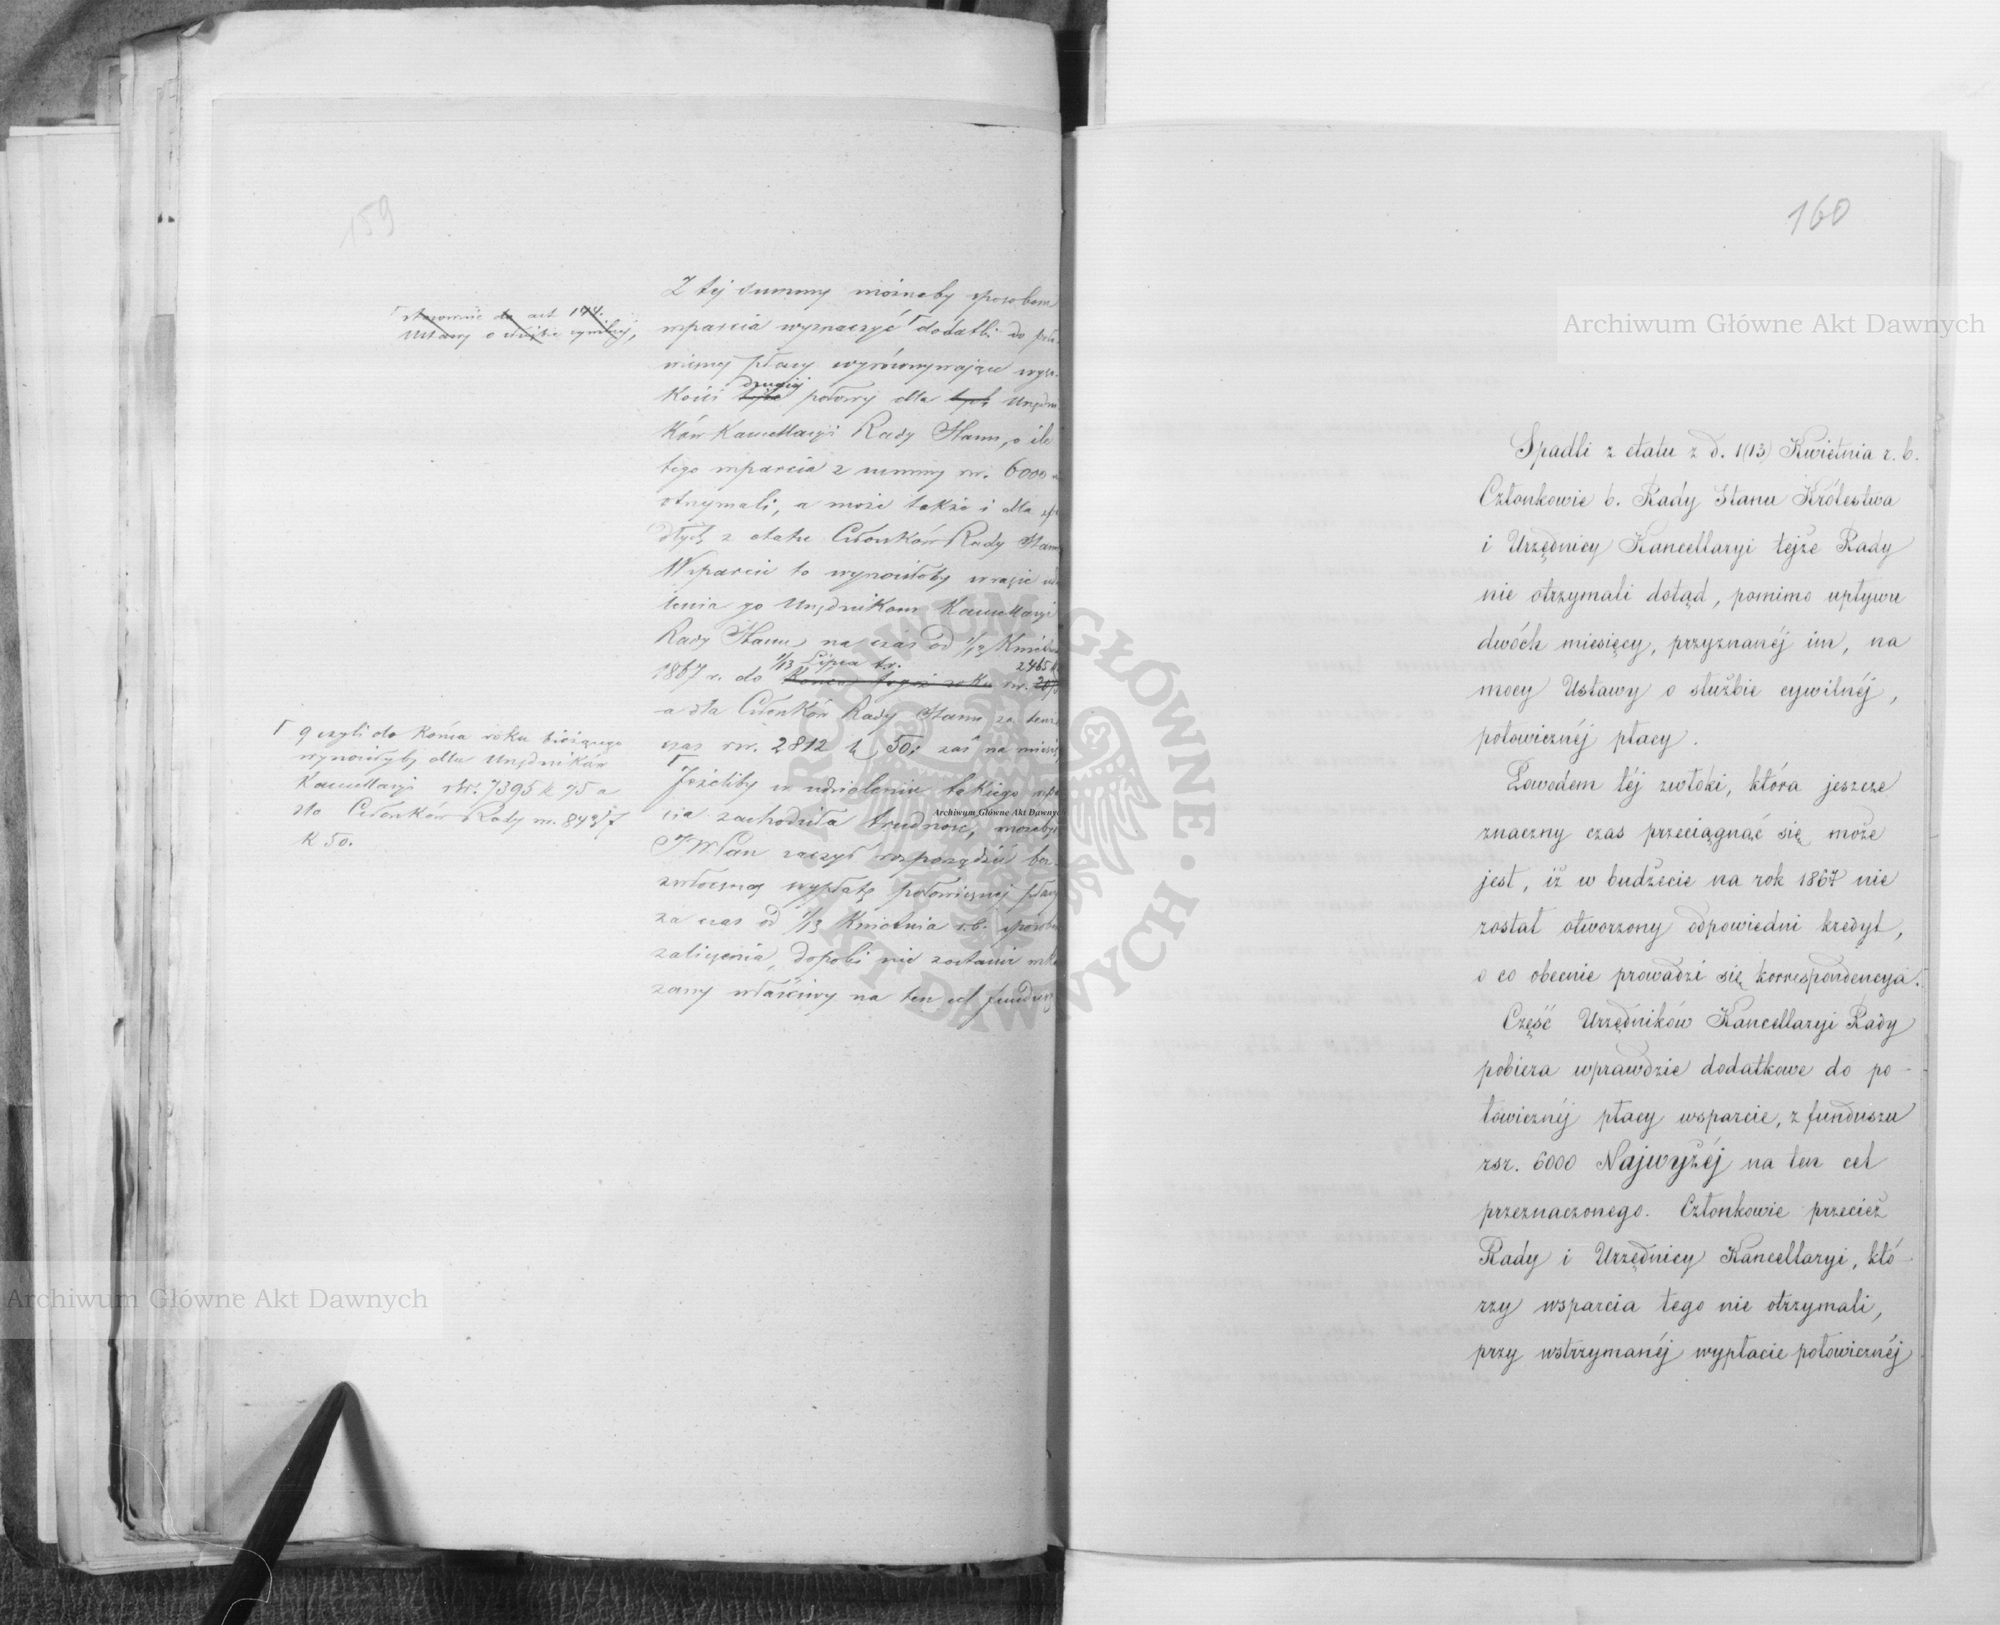 159
stosownie do art 144.
Ustawy o służbie cywilnéj,
Z tej summy możnaby sposobem
wparcia wyznaczyć dodatki do poło-
wicznej płacy wyrównywające wyso-
kości drugiéj połowy dla tych Urzędni
ków Kancellaryi Rady Stanu, o ile
tego wparcia z summy rsr. 6000
otrzymali, a może także i dla spa
dłych z etatu Członków Rady Stanu
Wsparcie to wynosiłoby w razie udzie
lenia go Urzędnikom Kancellaryi
Rady Stanu na czas od 1/13 Kwietnia
1/13 Lipca br. 2465
1867 r. do Końca tegoż roku rsr.
a dla Członków Rady Stanu za tenże
czas rsr. 2812 k 50; zaś na miesięcy
9 czyli do końca roku bieżącego
wynosiłyby dla Urzędników
Kancellaryi rsr. 7395 k 75 a
dla Członków Rady rs. 8437
k 50.
Jeżeliby w udzieleniu takiego wpar
cia zachodziła trudność, możeby
JWPan raczył rozporządzić bez-
zwłoczną wypłatę połowicznej płacy
za czas od 1/13 Kwietnia r.b. sposobem
zaliczenia, dopóki nie zostanie wska
zany właściwy na ten cel fundusz
160
Spadli z etatu z d. 1(13) Kwietnia r. b.
Członkowie b. Rady Stanu Królestwa
i Urzędnicy Kancellaryi tejże Rady
nie otrzymali dotąd, pomimo upływu
dwóch miesięcy, przyznanéj im, na
mocy Ustawy o służbie cywilnéj,
połowicznéj płacy.
Powodem téj zwłoki, która jeszcze
znaczny czas przeciągnąć się może
jest, iż w budżecie na rok 1867 nie
został otworzony odpowiedni kredyt,
o co obecnie prowadzi się korrespondencya.
Część Urzędników Kancellaryi Rady
pobiera wprawdzie dodatkowe do po-
łowicznéj płacy wsparcie, z funduszu
rsr. 6000 Najwyżéj na ten cel
przeznaczonego. Członkowie przecież
Rady i Urzędnicy Kancellaryi, któ-
rzy wsparcia tego nie otrzymali,
przy wstrzymanéj wypłacie połowicznéj
Archiwum Główne Akt Dawnych
Archiwum Główne Akt Dawnych
Archiwum Główne Akt Dawnych
ARCHIWUM GŁÓWNE AKT DAWNYCH